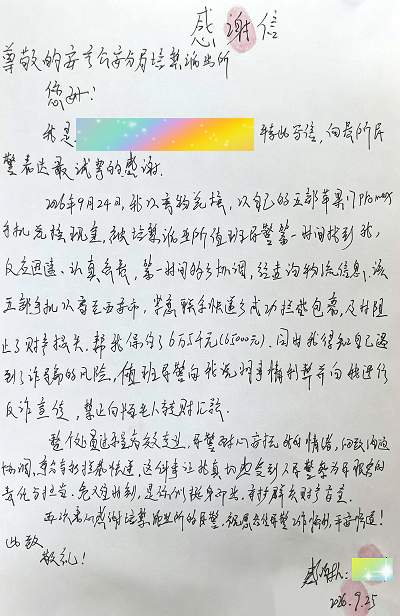 感谢信
尊敬的安宁公安分局培黎派出所
您好！
我是 特此写信，向贵所民
警表达最诚挚的感谢。
2026年9月24日，我以寄物兑换，以自己的五部苹果17Promax
手机兑换现金，被培黎派出所值班民警第一时间找到我，
反应迅速、认真负责，第一时间的多协调，经查询物流信息，该
五部手机以寄至西安市，紧急联系快递了成功拦截包裹，及时阻
止了财产损失，帮我保约了6万5千元(65000元)。同时我得知自己遇
到了诈骗的风险，值班民警向我说明事情利弊并向我进行
反诈宣传，禁止向陌生人转财汇款。
整个过程高效专业，民警耐心安抚我的情绪，细致沟通
协调，拦截快递，这件事让我真切感受到人民警察为民服务的
责任与担当。危难时刻，是你们挺身而出，守护群众财产安全。
再次衷心感谢培黎派出所的民警，祝愿各位民警工作顺利，平安顺遂！
此致
敬礼！
感谢人：
2026.9.25